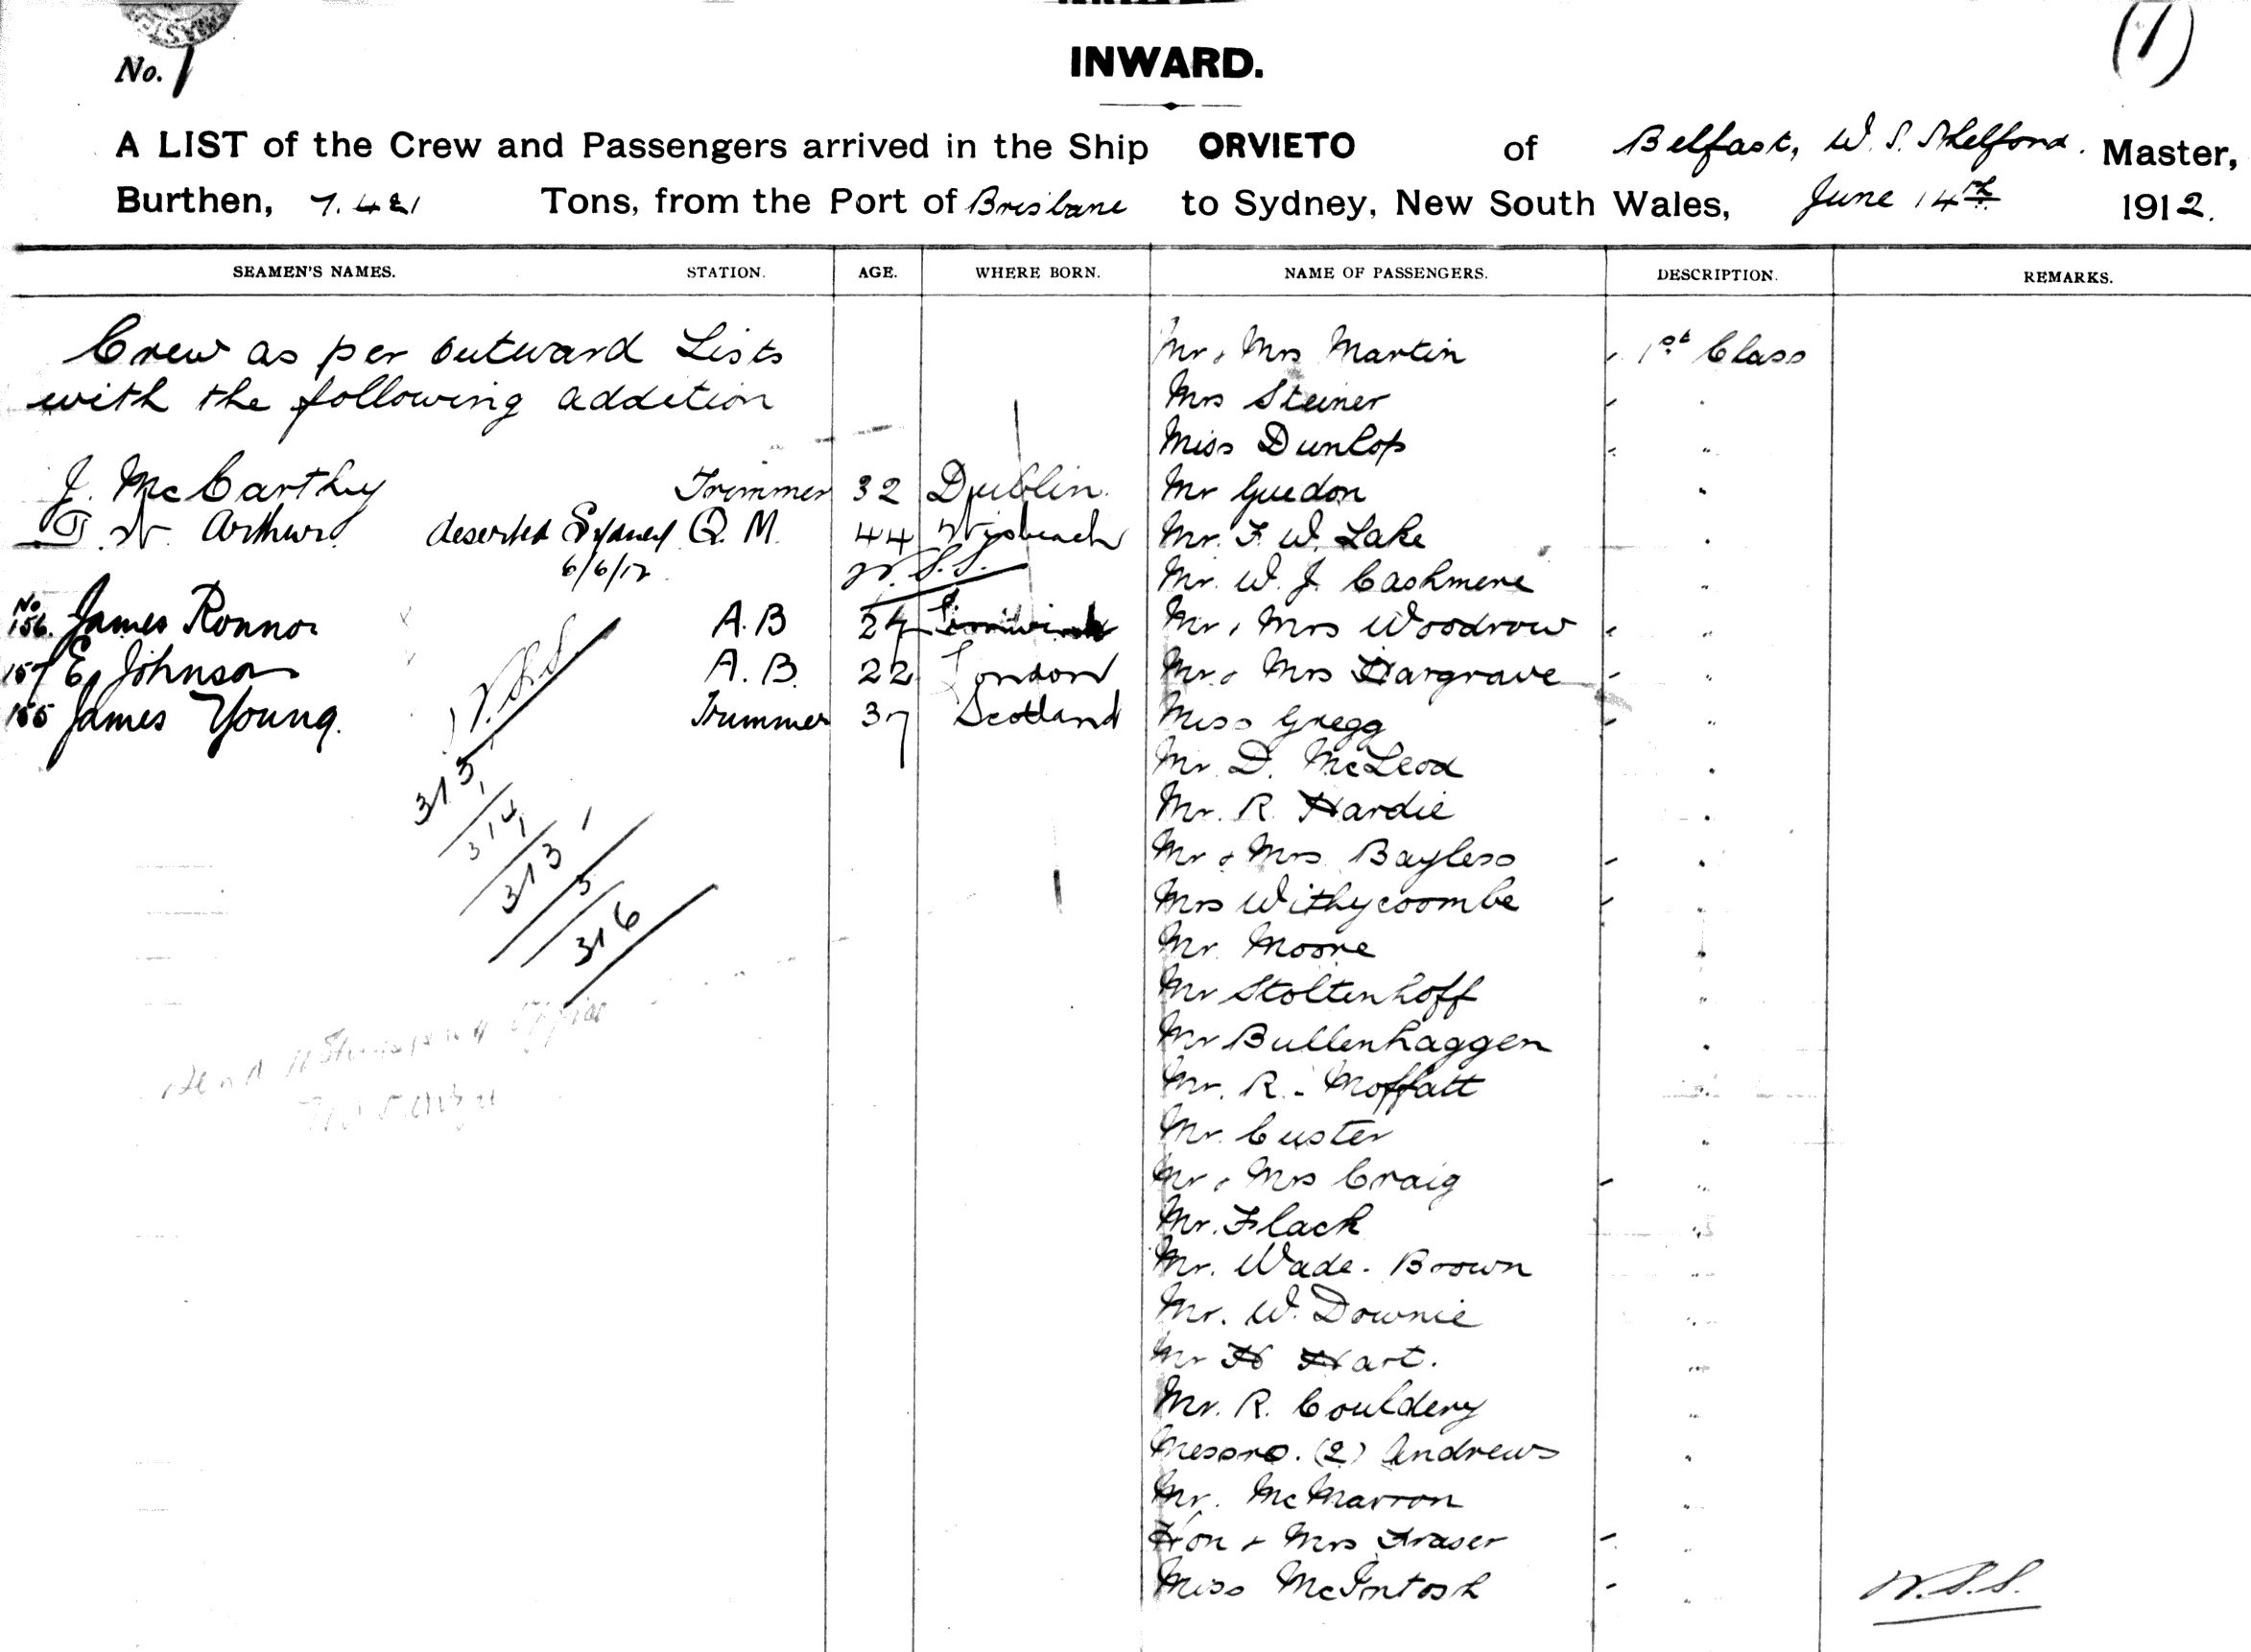 No. 1
(1)
INWARD.
A LIST of the Crew and Passengers arrived in the Ship ORVIETO of Belfast, W. S. Shelford. Master,
Burthen, 7.421 Tons, from the Port of Brisbane to Sydney, New South Wales, June 14th 1912.
SEAMEN'S NAMES. STATION. AGE. WHERE BORN. NAME OF PASSENGERS. DESCRIPTION. REMARKS.
Crew as per outward Lists
with the following addition
J. McCarthy Trimmer 32 Dublin.
W. Arthur deserted Sydney Q. M. 44 Wisbeach
6/6/12
W.S.S.
No 156. James Ronnor A.B 24
157 E. Johnson A.B. 22 London
155 James Young. Trimmer 37 Scotland
W.S.S.
315
314
1
313
3
316
Mr & Mrs Martin 1st Class
Mrs Steiner "
Miss Dunlop "
Mr Guedon "
Mr. F. W. Lake "
Mr. W. J. Cashmere "
Mr & Mrs Woodrow "
Mr & Mrs Hargrave "
Miss Gregg "
Mr D. McLeod "
Mr. R. Hardie "
Mr & Mrs Bayless "
Mrs Withycoombe "
Mr. Moore "
Mr Stoltenhoff "
Mr Bullenhaggen "
Mr. R. Moffatt "
Mr. Custer "
Mr & Mrs Craig "
Mr. Flack "
Mr. Wade-Brown "
Mr. W. Downie "
Mr H Hart. "
Mr. R. Couldery "
Messrs. (2) Andrews "
Mr. McMarron "
Hon & Mrs Fraser "
Miss McIntosh "
W.S.S.